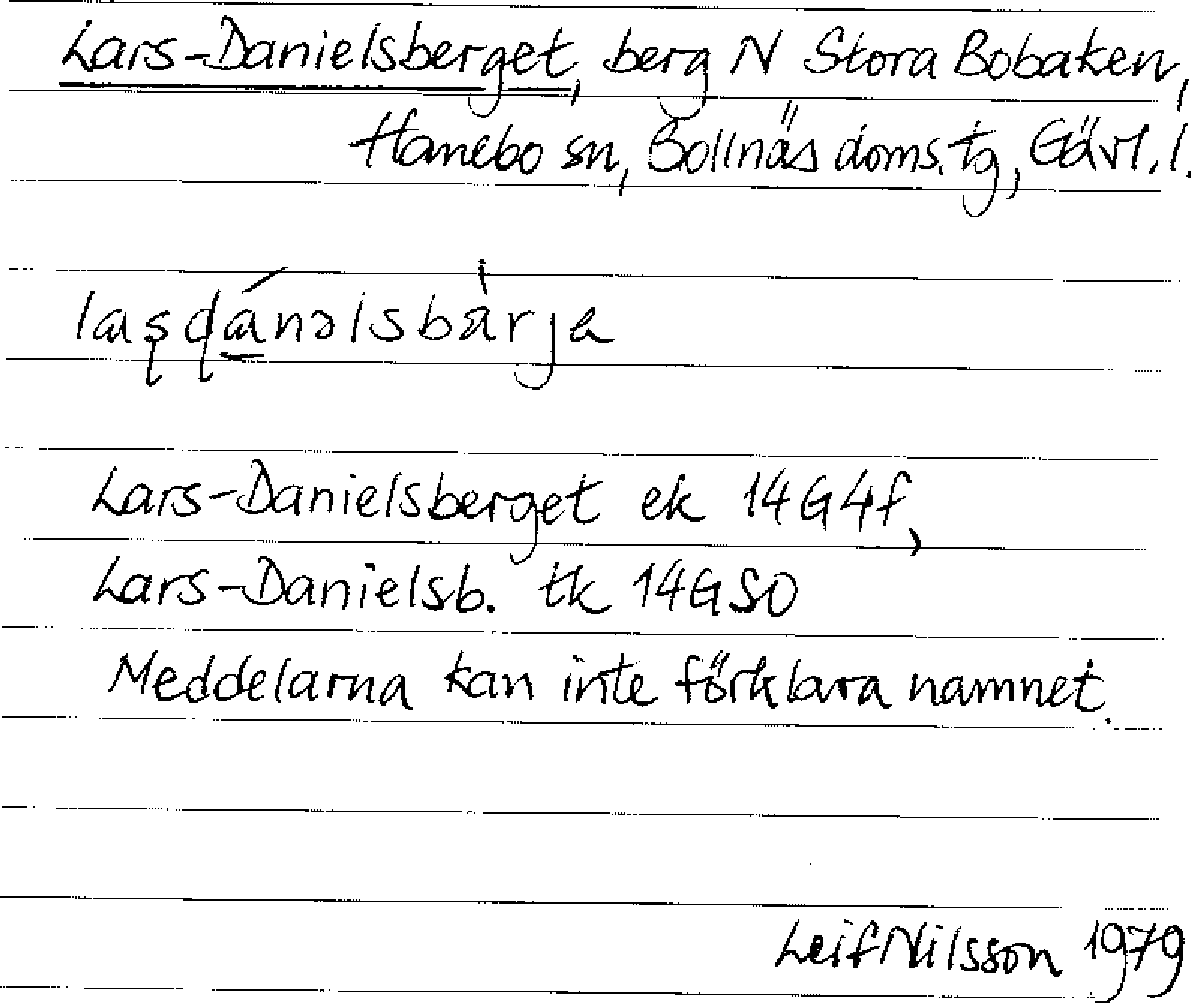 Lars-Danielsberget, berg N Stora Bobaken,
Hanebo sn, Bollnäs doms.tg, Gävl.l.
laʂɖánəlsbàrja
Lars-Danielsberget ek 14G4f,
Lars-Danielsb. tk 14GSO
Meddelarna kan inte förklara namnet.
Leif Nilsson 1979